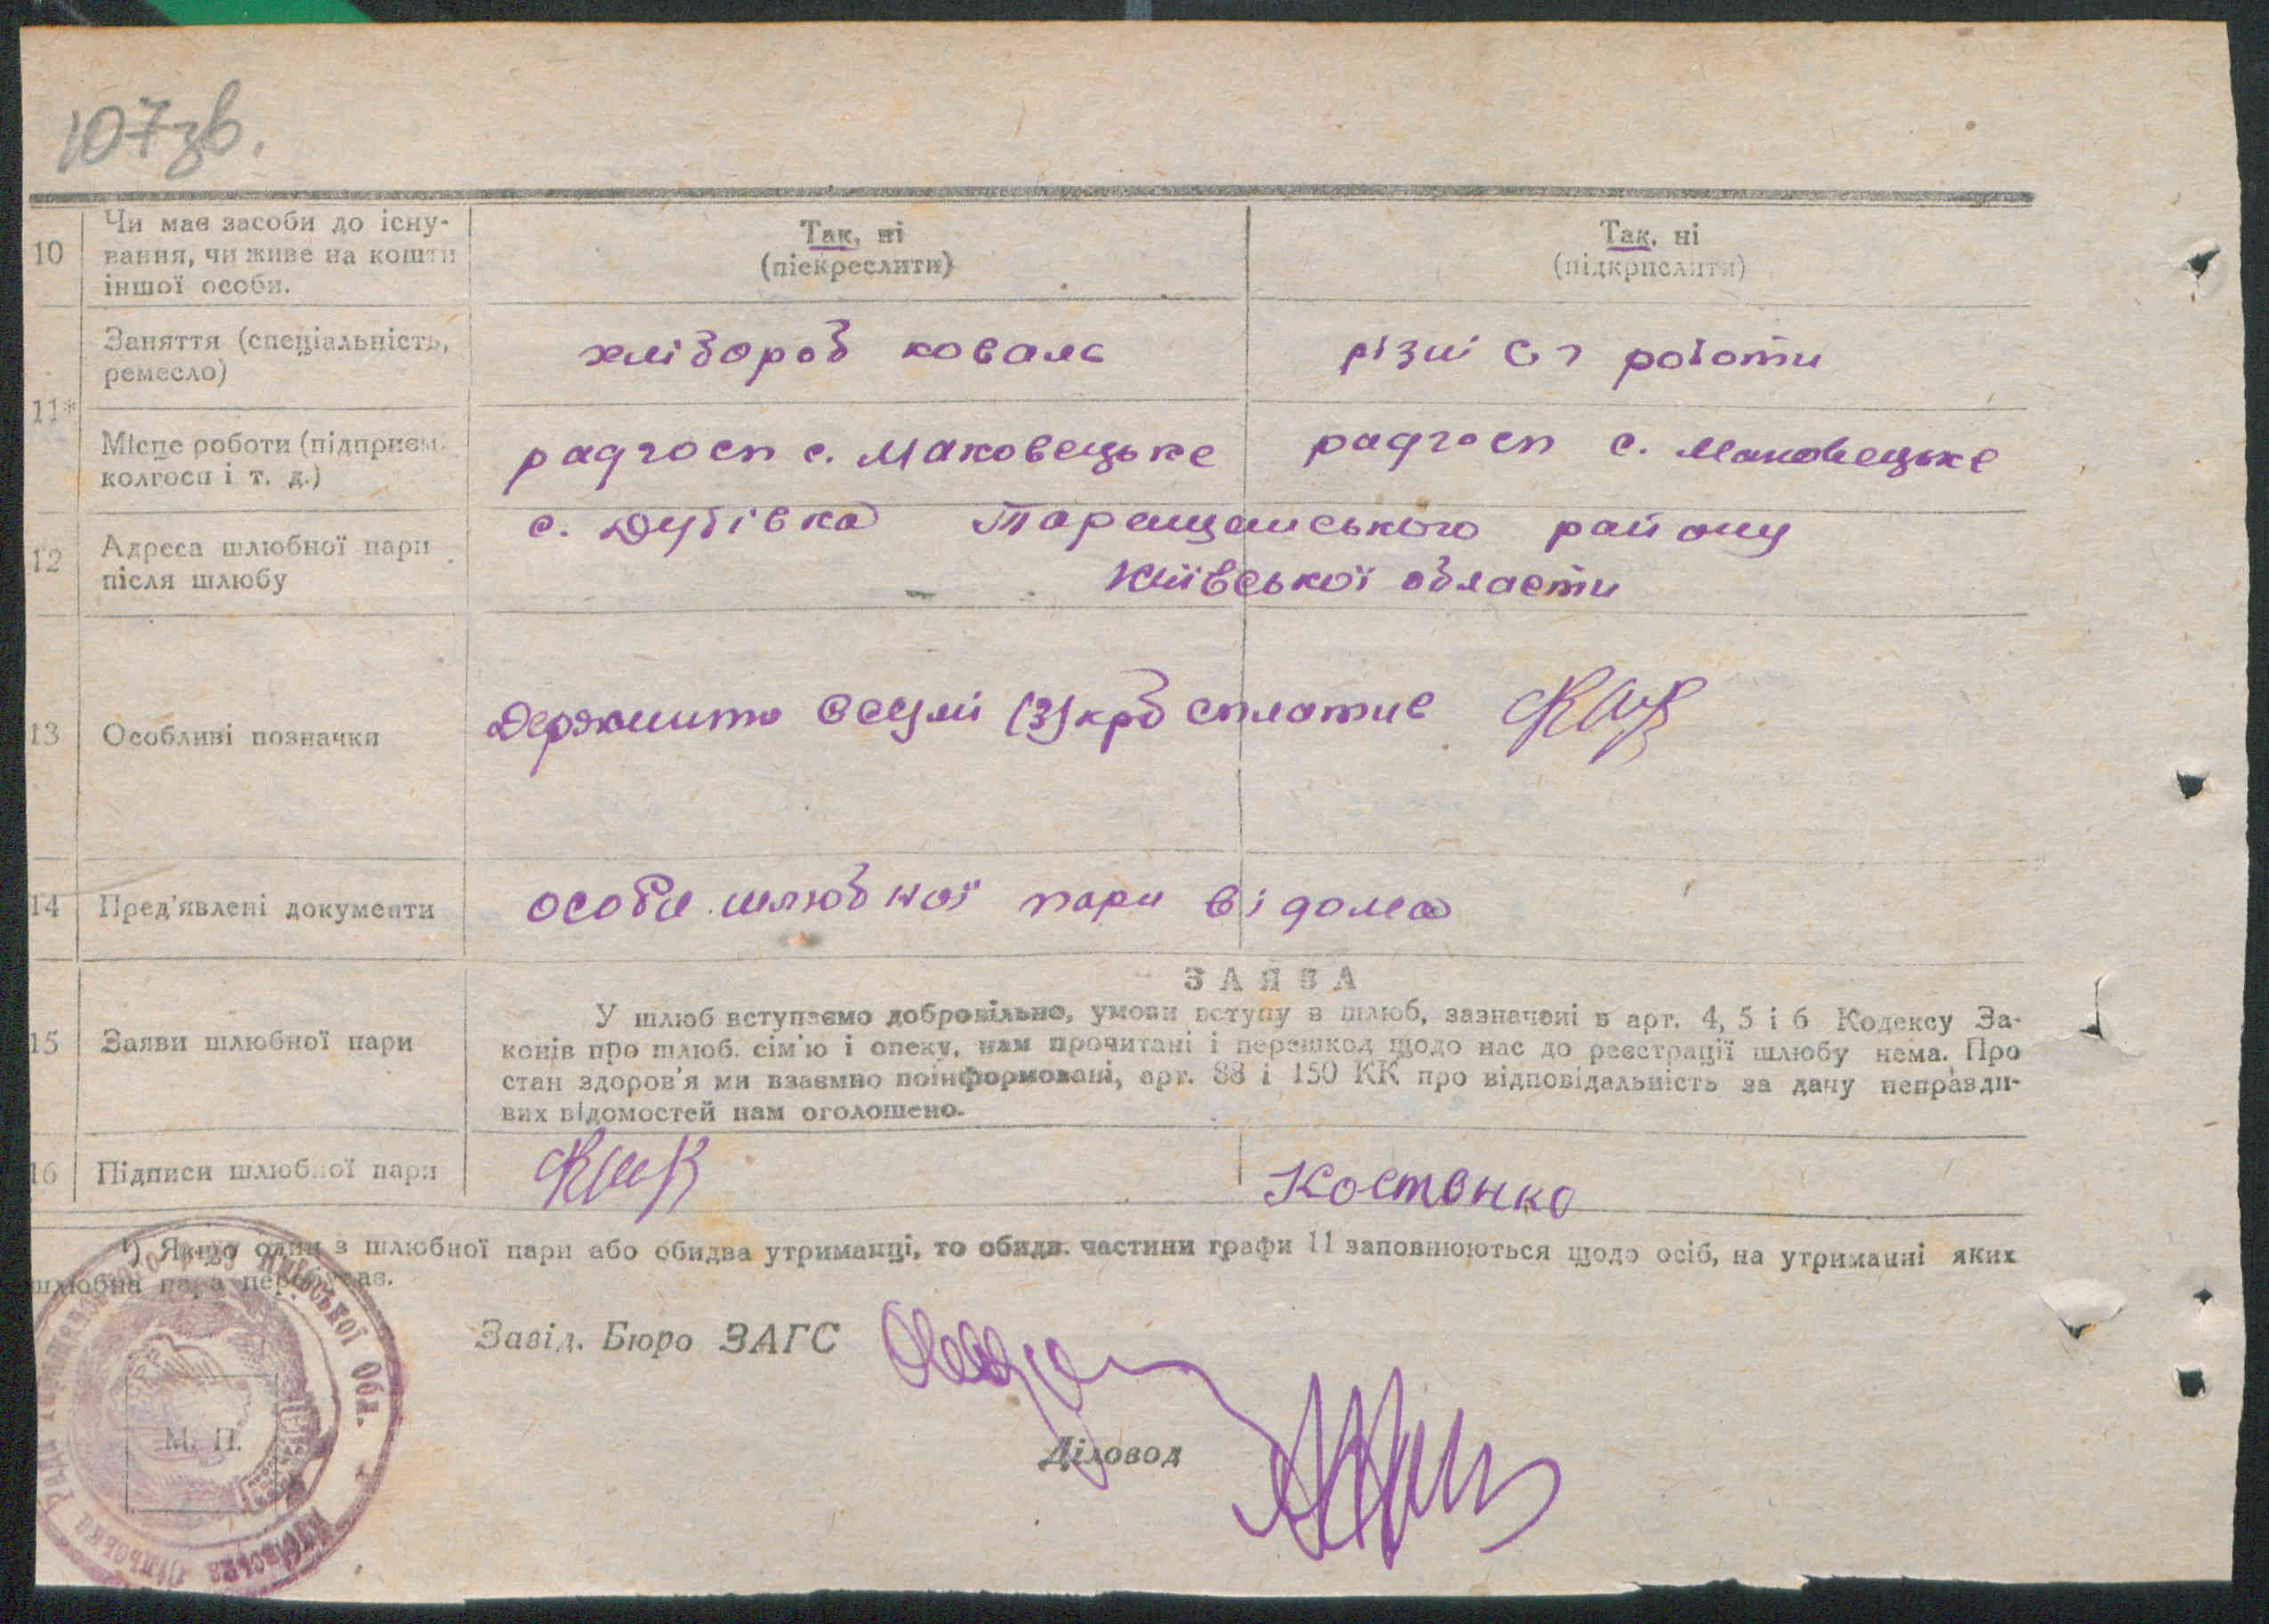 107зв.
10
Чи має засоби до існу-
вання, чи живе на кошти
іншої особи.
Так, ні
(піекреслити)
Так, ні
(підкрпслити)
11*
Заняття (спеціальність,
ремесло)
хлібороб коваль
різні с/г роботи
Місце роботи (підприєм.
колгосп і т. д.)
радгосп с. Маковецьке
радгосп с. Маковецьке
12
Адреса шлюбної пари
після шлюбу
с. Дубівка Таращанського району
Київської області
13
Особливі позначки
Держмито в сумі (3) крб сплатив
14
Пред'явлені документи
особи шлюбної пари відома
ЗАЯВА
15
Заяви шлюбної пари
У шлюб вступаємо добровільно, умови вступу в шлюб, зазначені в арт. 4, 5 і 6 Кодексу За-
конів про шлюб. сім'ю і опеку, нам прочитані і перешкод щодо нас до реєстрації шлюбу нема. Про
стан здоров'я ми взаємно поінформовані, арт. 88 і 150 КК про відповідальність за дачу неправди-
вих відомостей нам оголошено.
16
Підписи шлюбної пари
Костенко
¹) Якщо один з шлюбної пари або обидва утриманці, то обидв. частини графи 11 заповнюються щодо осіб, на утриманні яких
шлюбна пара перебуває.
Київської Обл.
Завід. Бюро ЗАГС
М. П.
Діловод